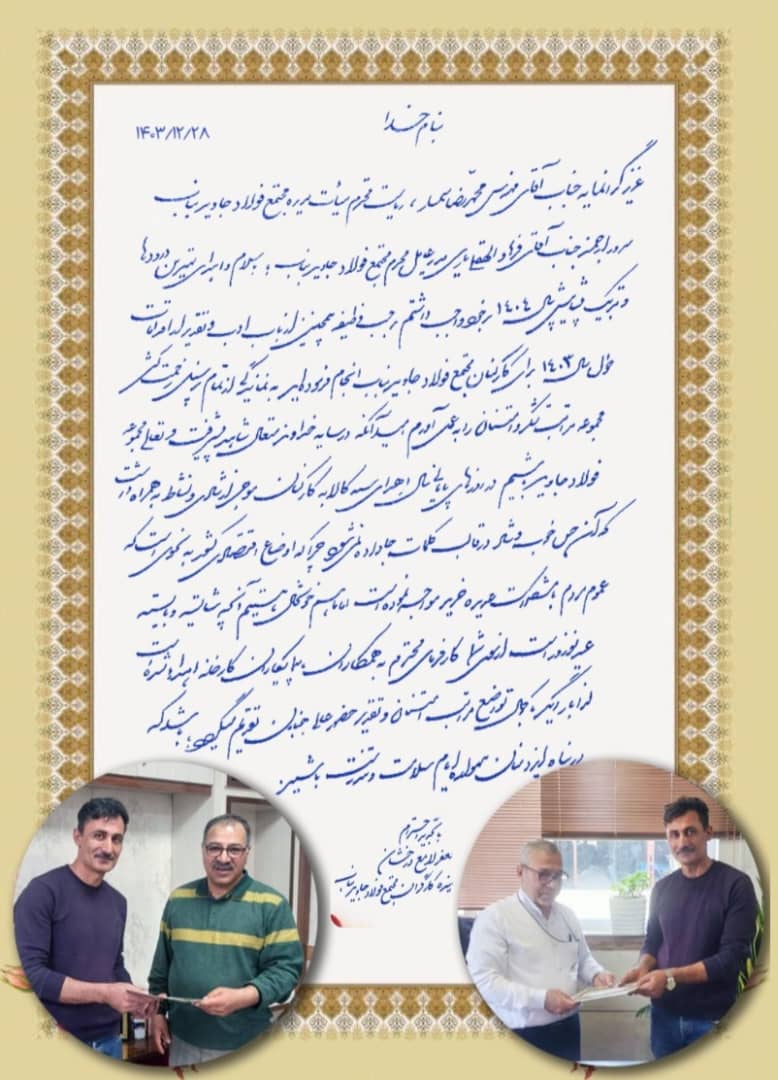 بنام خدا
۱۴۰۳/۱۲/۲۸
عزیز گرانمایه جناب آقای مهندس محمدرضا سمسار ، ریاست محترم هیئت مدیره مجتمع فولاد جاوید بناب
سرور ارجمند جناب آقای فرهاد مدیرعامل محترم مجتمع فولاد جاوید بناب ؛ سلام و ابتدای بهترین درودها
و تبریک پیشاپیش سال ۱۴۰۴ برخود واجب داشتم بر حسب وظیفه همچنین از باب ادب و تقدیر از اقداماتی
طول سال ۱۴۰۳ برای کارکنان مجتمع فولاد جاوید بناب انجام فرموده‌اید به نمایندگی از تمام پرسنل زحمت کش
مجموعه مراتب تشکر و امتنان را به عمل آورم امید آنکه در سایه خداوند متعال شاهد پیشرفت و تعالی مجموعه
فولاد جاوید باشیم در روزهای پایانی سال اهدای سبد کالا به کارکنان موجی از شادی و نشاط به همراه داشت
که آن حس خوب وصف در قالب کلمات جا داده نمی‌شود چرا که اوضاع اقتصادی کشور به نحوی است که
عموم مردم با مشکلات عدیده مواجه نموده است اما باز هم خوشحال هستیم آنچه شایسته و بایسته
عید نوروز است از سوی شما کارفرمای محترم به همکاران، کارخانه اهداء شده است
لذا بار دیگر با کمال تواضع مراتب امتنان و تقدیر حضور عالیجنابان تقدیم میگردد، باشد که
در پناه ایزد منان همواره ایام سلامت و تندرست باشید.
با تجدید احترام
جعفر درخشان
نماینده کارگران مجتمع فولاد جاوید بناب